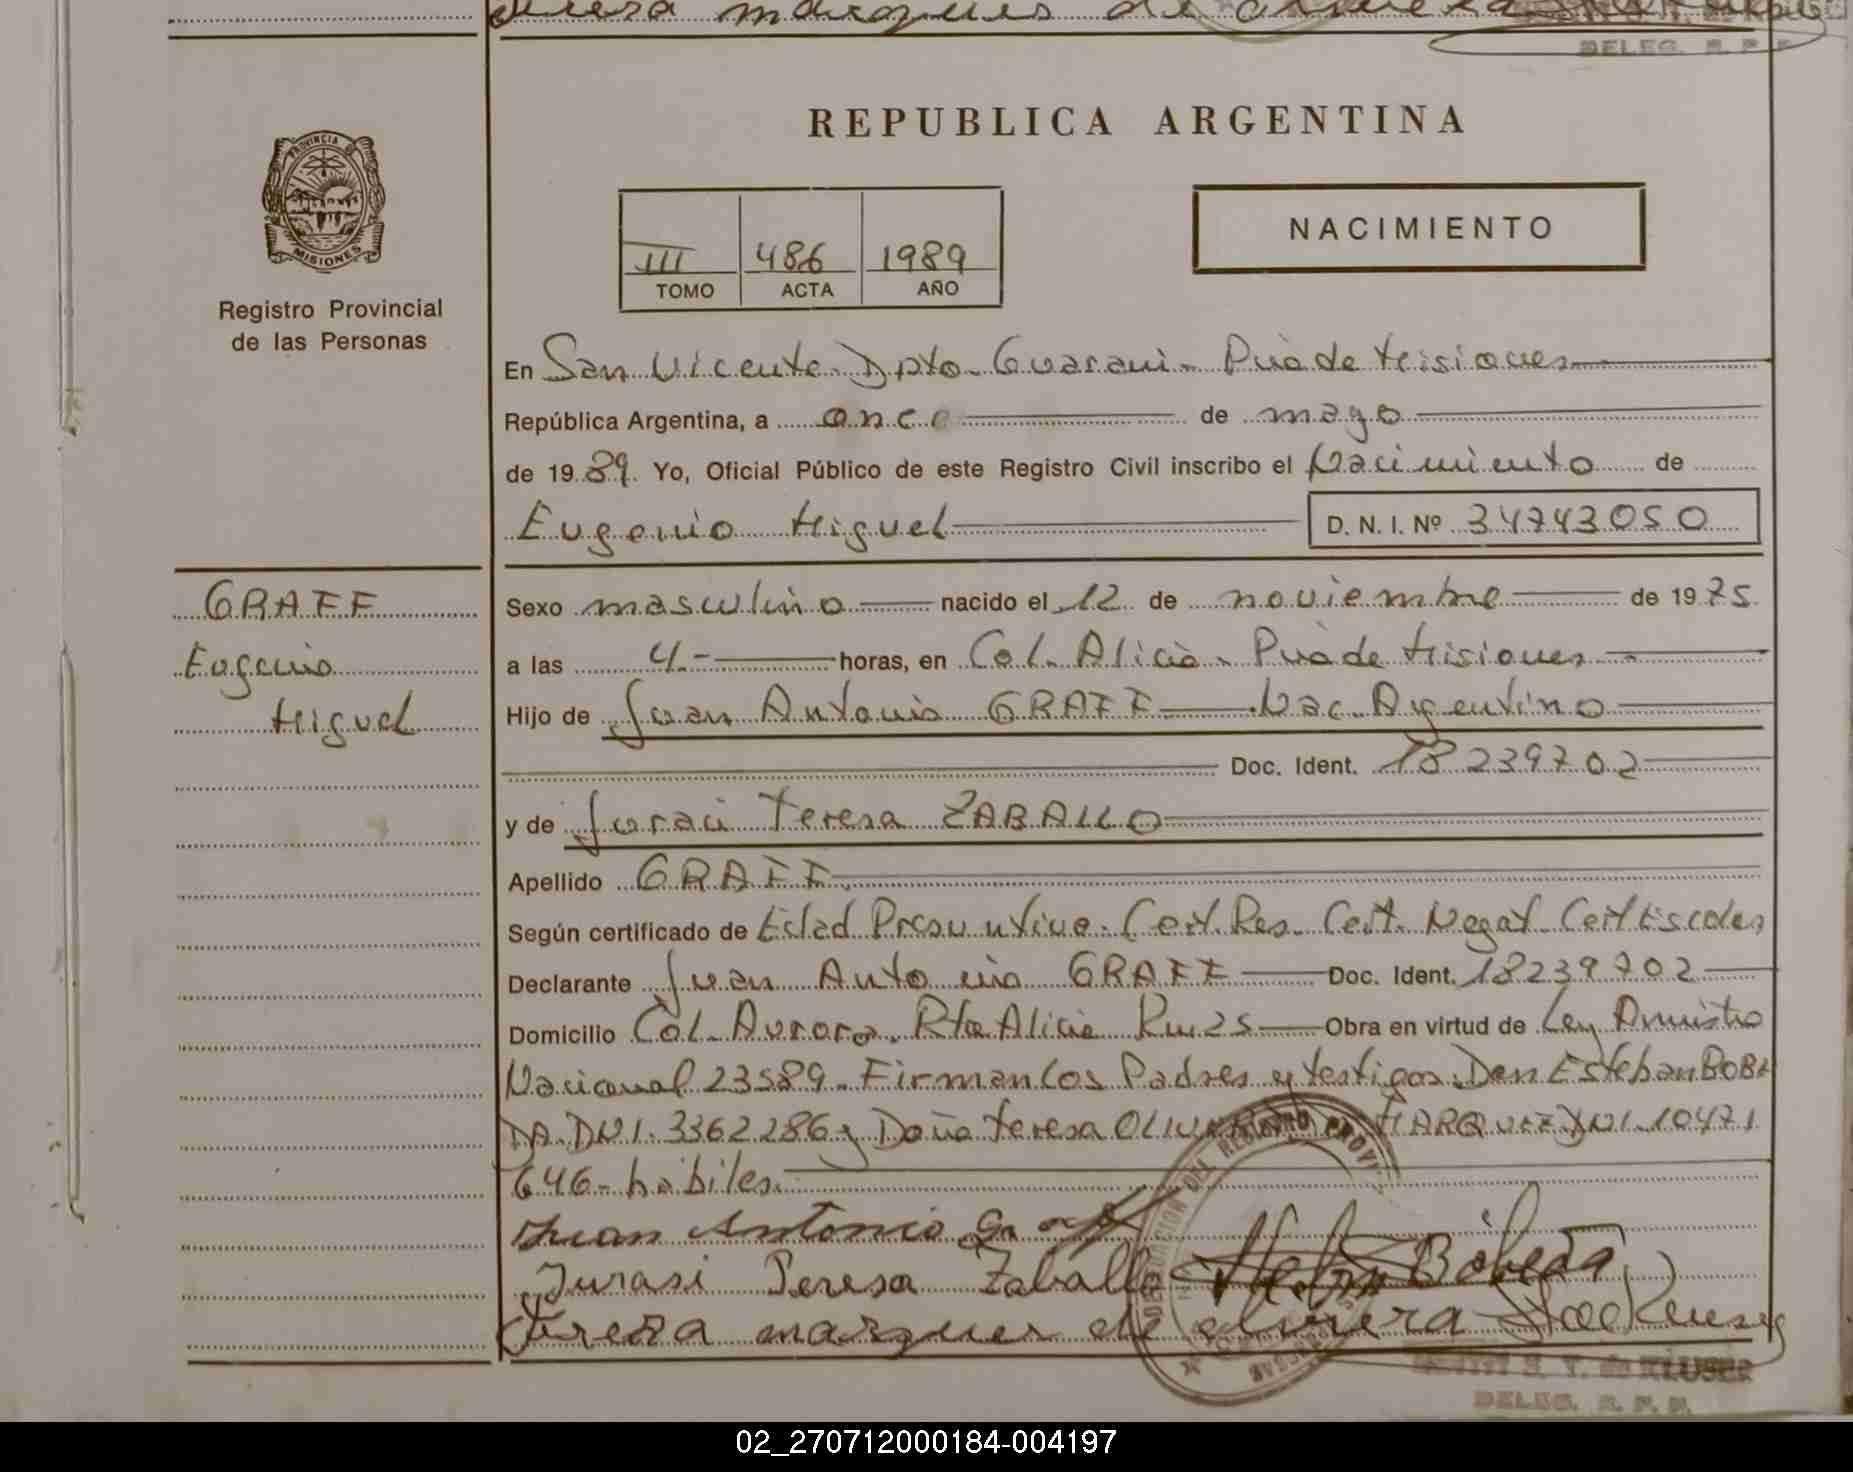 DELEG. R. P. P.
REPUBLICA ARGENTINA
PROVINCIA DE
MISIONES
Registro Provincial
de las Personas
III 486 1989
TOMO ACTA AÑO
NACIMIENTO
En San Vicente Dpto. Guarani - Pcia de Misiones
República Argentina, a once de mayo
de 1989. Yo, Oficial Público de este Registro Civil inscribo el Nacimiento de
Eugenio Miguel D. N. I. Nº 34743050
GRAFF
Eugenio
Miguel
Sexo masculino nacido el 12 de noviembre de 1975
a las 4.- horas, en Col. Alicia - Pcia de Misiones
Hijo de Juan Antonio GRAFF Nac. Argentino
Doc. Ident. 18239702
y de Juraci Teresa ZABALLO
Apellido GRAFF
Según certificado de Edad Presuntiva. Cert. Res. Cert. Negat. Cert Escolar
Declarante Juan Antonio GRAFF Doc. Ident. 18239702
Domicilio Col. Aurora. Rta Alicia Km 25 Obra en virtud de Ley Amnistia
Nacional 23589. Firman los Padres y testigos Don Esteban BOBE
DA. DNI. 3362286 y Doña Teresa MARQUEZ DNI. 10471
646 - habiles.
Juan Antonio Graff
Jurasi Teresa Zaballo Boveda
Tereza marques de olivera
DELEG. R. P. P.
02_270712000184-004197